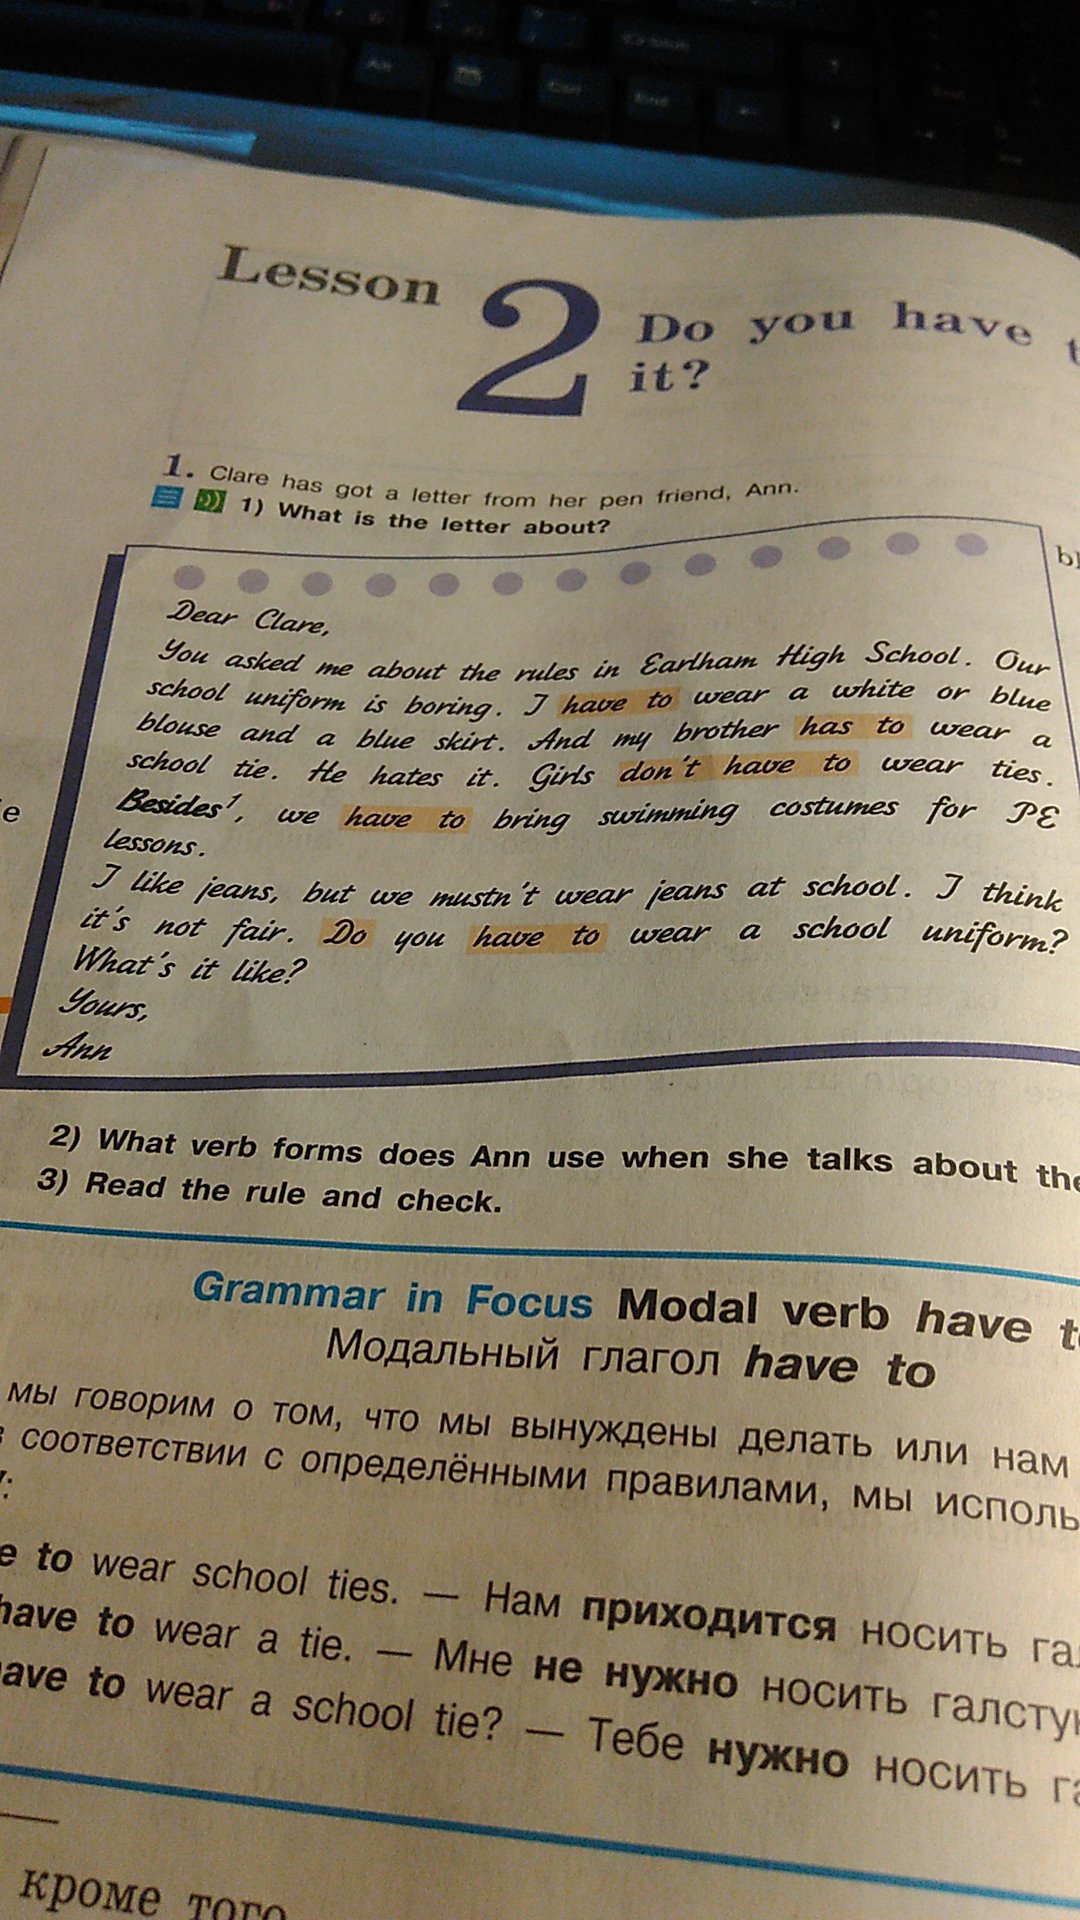 Lesson 2 Do you have
it?
1. Clare has got a letter from her pen friend, Ann.
1) What is the letter about?
Dear Clare,
You asked me about the rules in Earlham High School. Our
school uniform is boring. I have to wear a white or blue
blouse and a blue skirt. And my brother has to wear a
school tie. He hates it. Girls don't have to wear ties.
Besides¹, we have to bring swimming costumes for PE
lessons.
I like jeans, but we mustn't wear jeans at school. I think
it's not fair. Do you have to wear a school uniform?
What's it like?
Yours,
Ann
2) What verb forms does Ann use when she talks about the
3) Read the rule and check.
Grammar in Focus Modal verb have to
Модальный глагол have to
мы говорим о том, что мы вынуждены делать или нам
соответствии с определёнными правилами, мы
to wear school ties. — Нам приходится носить
have to wear a tie. — Мне не нужно носить
to wear a school tie? — Тебе нужно носить
кроме того